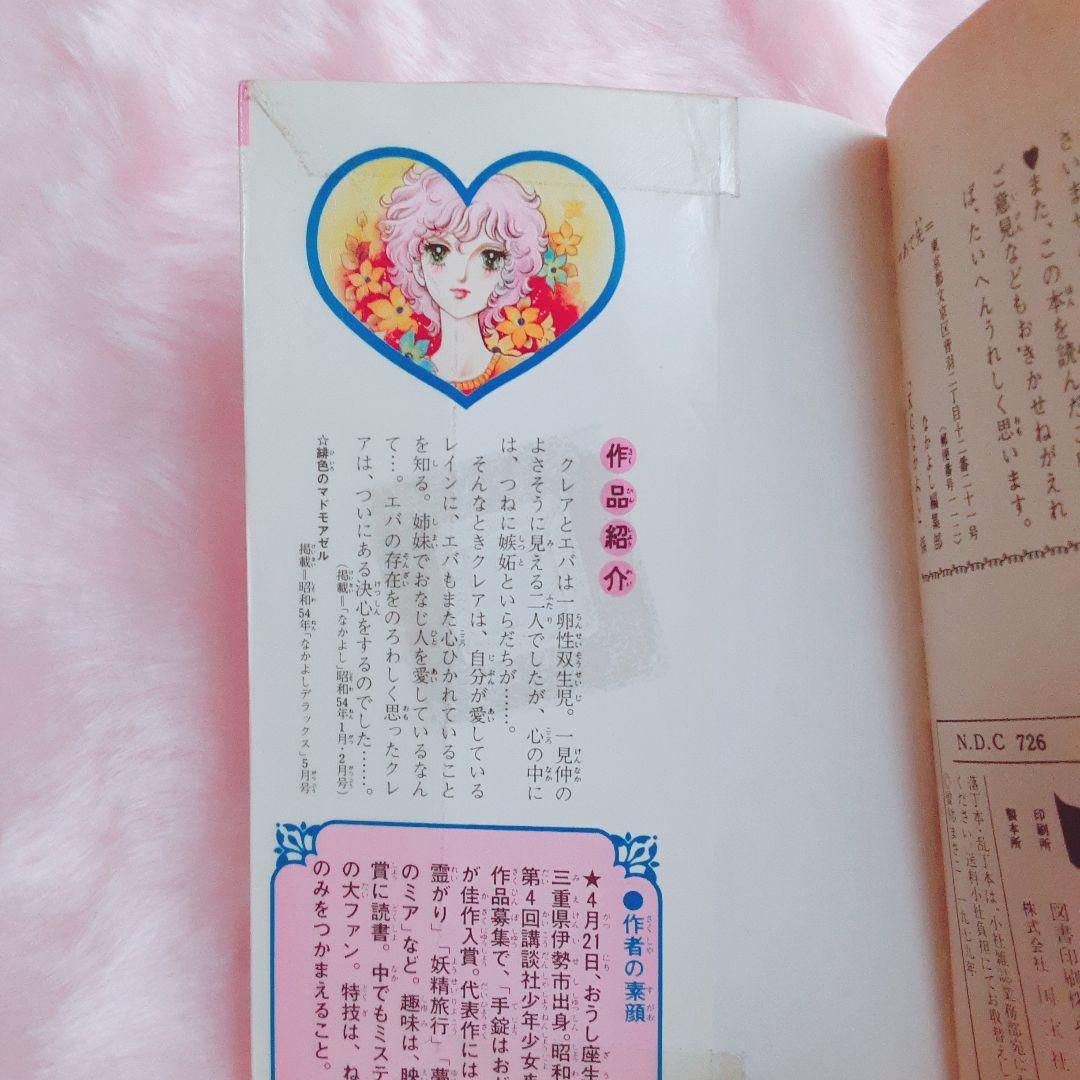 さいませ
♥また、この本を読んだご
ご意見などもおきかせねがえれ
ば、たいへんうれしく思います。
東京都文京区音羽二丁目十二番二十一号
(郵便番号一一二)
なかよし編集部
N.D.C 726
印刷所
製本所
図書印刷株式
株式会社 国宝社
落丁本・乱丁本は、小社雑誌業務部宛に
ください。送料小社負担にてお取替えし
一九七九年
作品紹介
クレアとエバは一卵性双生児。一見仲の
よさそうに見える二人でしたが、心の中に
は、つねに嫉妬といらだちが……。
そんなときクレアは、自分が愛している
レインに、エバもまた心ひかれていること
を知る。姉妹でおなじ人を愛しているなん
て…。エバの存在をのろわしく思ったクレ
アは、ついにある決心をするのでした……。
(掲載=「なかよし」昭和54年1月・2月号)
☆緋色のマドモアゼル
掲載=昭和54年「なかよしデラックス」5月号
●作者の素顔
★4月21日、おうし座生
三重県伊勢市出身。昭和
第4回講談社少年少女ま
作品募集で、「手錠はおが
が佳作入賞。代表作には
霊がり」「妖精旅行」「夢
のミア」など。趣味は、映
賞に読書。中でもミステ
の大ファン。特技は、ね
のみをつかまえること。